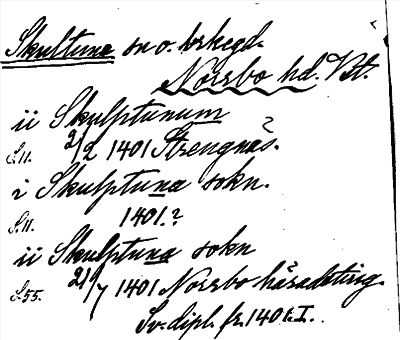 Skultuna sn o. krkegd.
Norrbo hd. Vst.
ii Skulptunum
S. 11. 2/2 1401 Strengnäs.?
i Skulptuna sokn.
S. 11. 1401.?
ii Skulptuna sokn
S. 55. 21/7 1401 Norrbo häradsting.
Sv. dipl. fr. 1401. I.